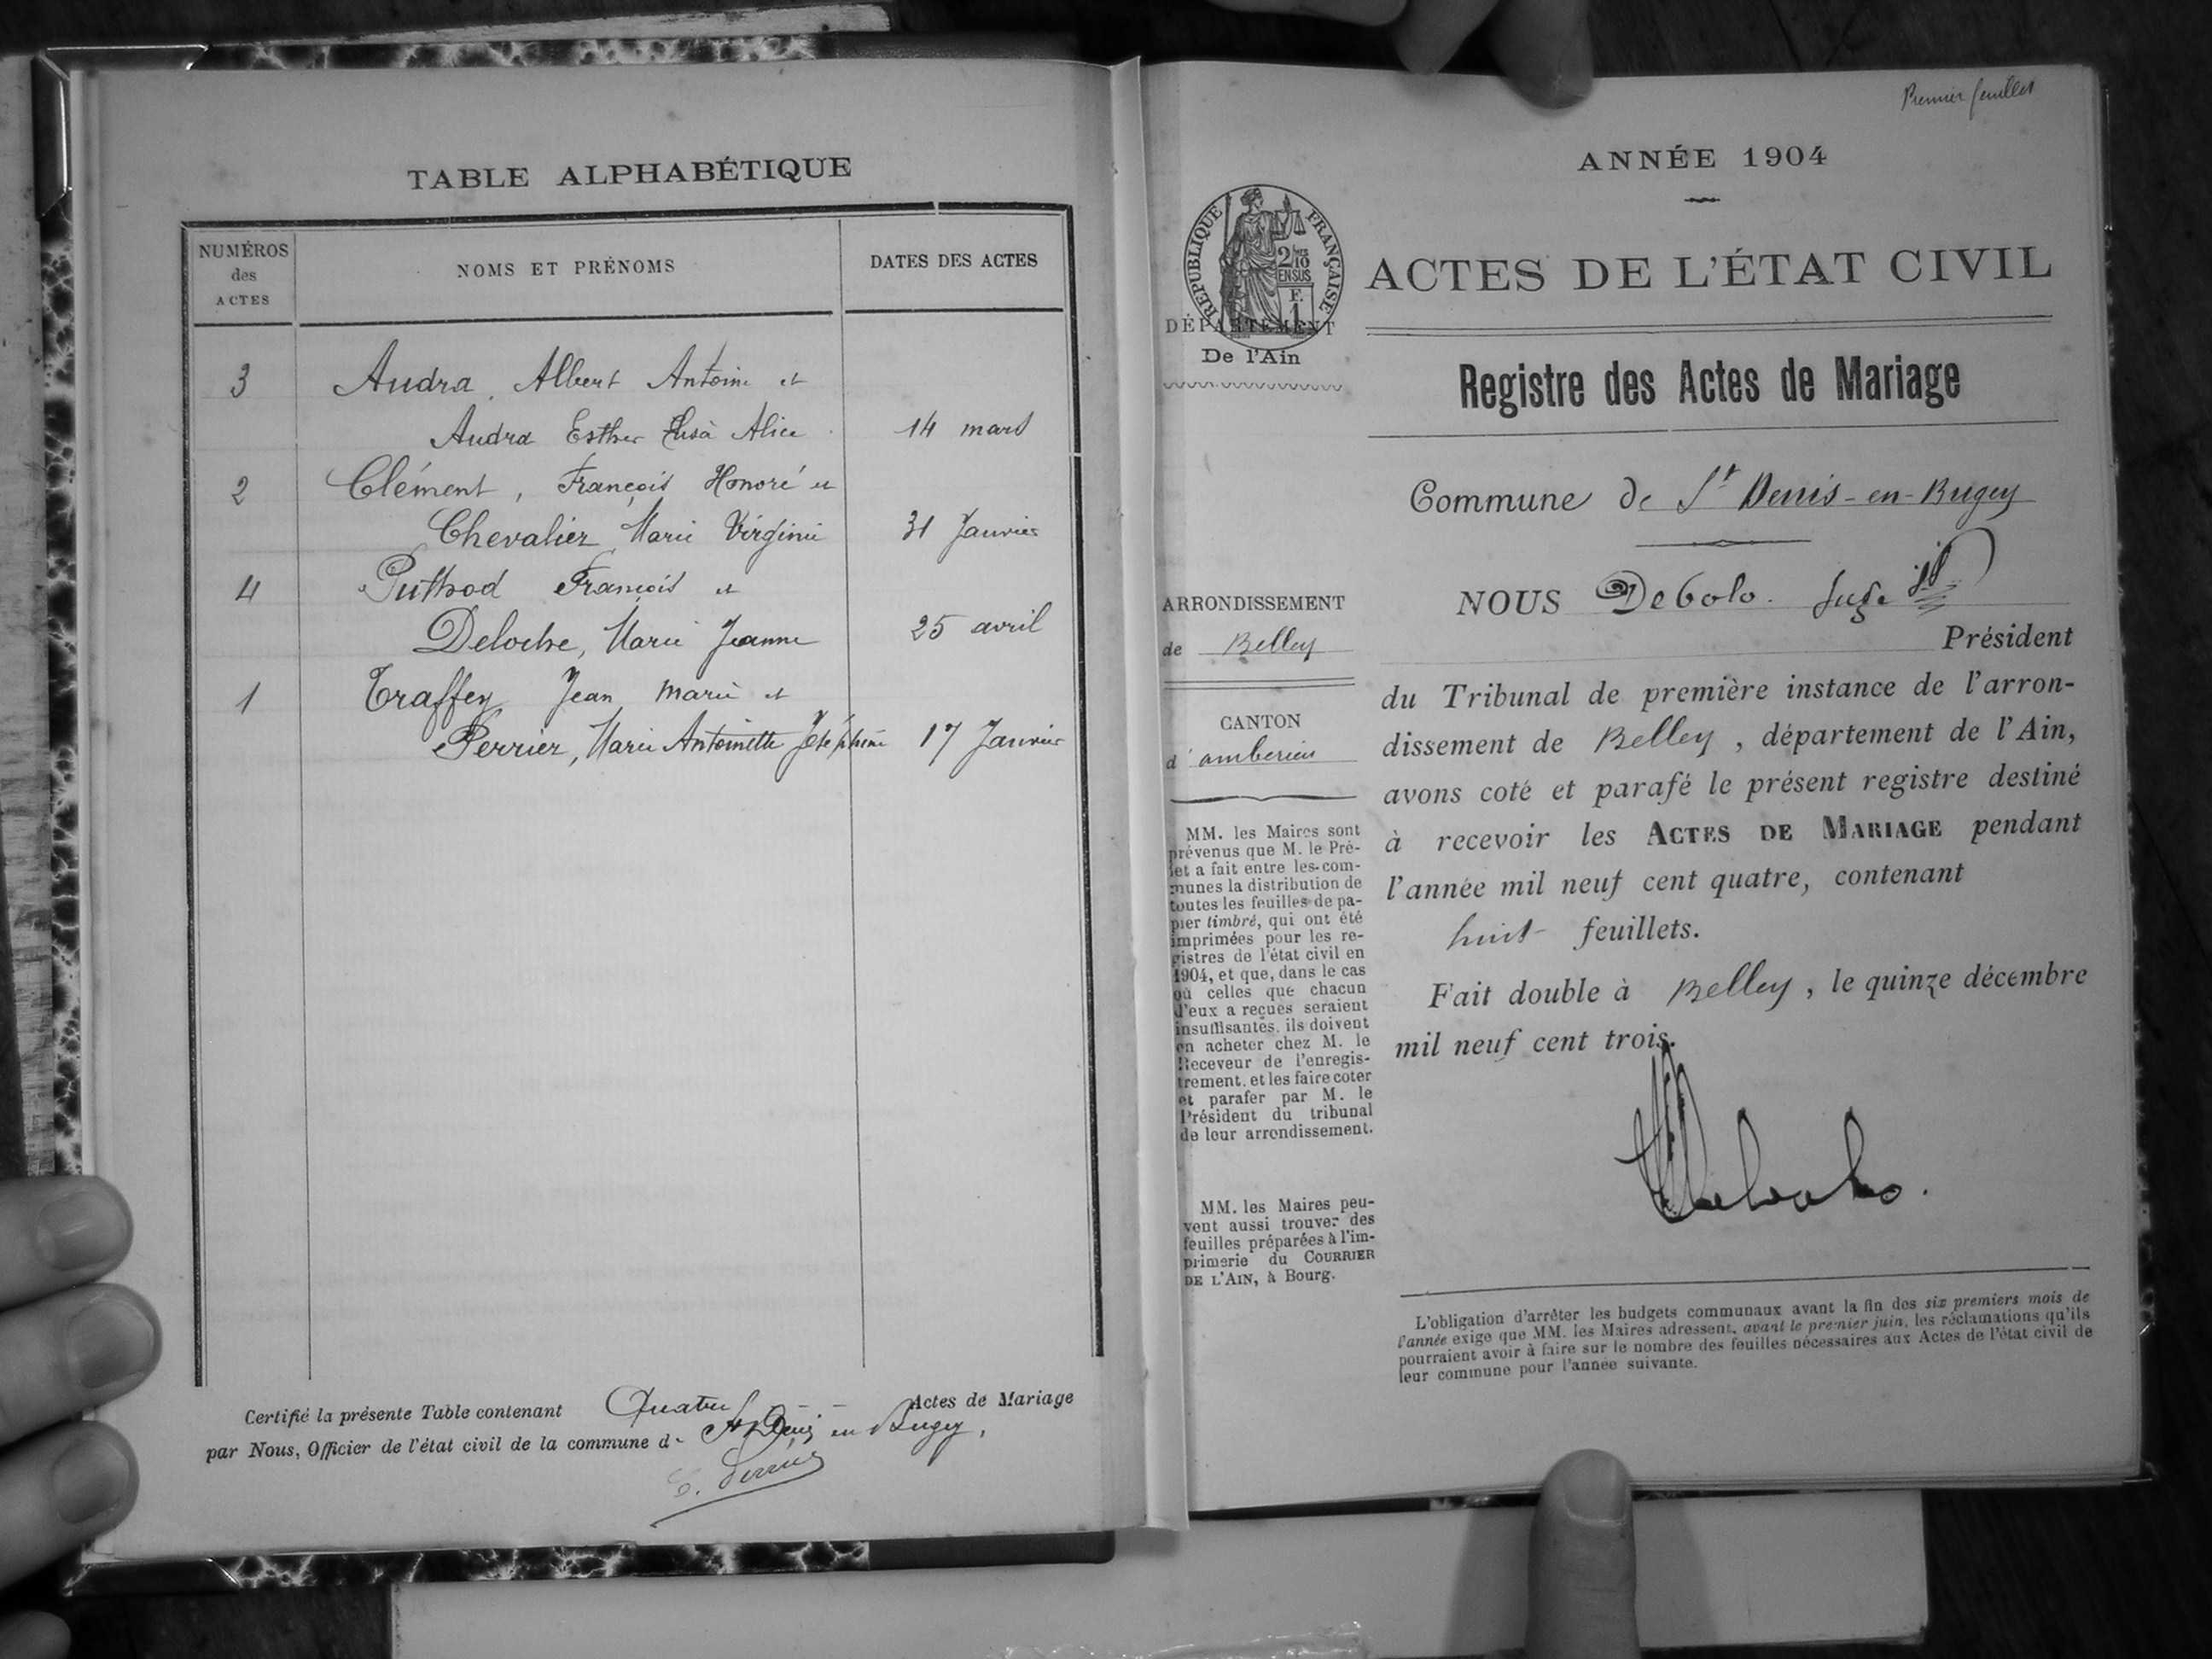 TABLE ALPHABÉTIQUE
NUMÉROS
des
ACTES
NOMS ET PRÉNOMS
DATES DES ACTES
3 Audra, Albert Antoine et
Audra Esther Elisa Alice 14 mars
2 Clément, François Honoré et
Chevalier, Marie Virginie 31 Janvier
4 Puthod François et
Deloche, Marie Jeanne 25 avril
1 Traffey Jean Marie et
Perrier, Marie Antoinette Joséphine 17 Janvier
Certifié la présente Table contenant Quatre Actes de Mariage
par Nous, Officier de l'état civil de la commune d. St Denis en Bugey,
Premier feuillet
ANNÉE 1904
RÉPUBLIQUE FRANÇAISE
2/10
EN SUS
F.
1
ACTES DE L'ÉTAT CIVIL
DÉPARTEMENT
De l'Ain
Registre des Actes de Mariage
Commune de St Denis-en-Bugey
ARRONDISSEMENT
de Belley
CANTON
d'ambérieu
MM. les Maires sont
prévenus que M. le Pré-
fet a fait entre les com-
munes la distribution de
toutes les feuilles de pa-
pier timbré, qui ont été
imprimées pour les re-
gistres de l'état civil en
1904, et que, dans le cas
où celles que chacun
d'eux a reçues seraient
insuffisantes, ils doivent
en acheter chez M. le
Receveur de l'enregis-
trement, et les faire coter
et parafer par M. le
Président du tribunal
de leur arrondissement.
MM. les Maires peu-
vent aussi trouver des
feuilles préparées à l'im-
primerie du COURRIER
DE L'AIN, à Bourg.
NOUS Debolo. Juge
Président
du Tribunal de première instance de l'arron-
dissement de Belley, département de l'Ain,
avons coté et parafé le présent registre destiné
à recevoir les ACTES DE MARIAGE pendant
l'année mil neuf cent quatre, contenant
huit feuillets.
Fait double à Belley, le quinze décembre
mil neuf cent trois.
Debolo.
L'obligation d'arrêter les budgets communaux avant la fin des six premiers mois de
l'année exige que MM. les Maires adressent, avant le premier juin, les réclamations qu'ils
pourraient avoir à faire sur le nombre des feuilles nécessaires aux Actes de l'état civil de
leur commune pour l'année suivante.